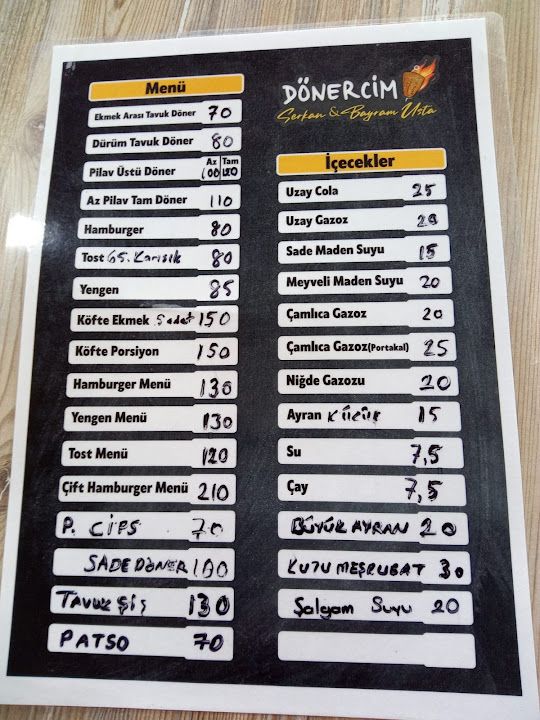 Menü
Ekmek Arası Tavuk Döner 70
Dürüm Tavuk Döner 80
Az Tam
Pilav Üstü Döner 100 120
Az Pilav Tam Döner 110
Hamburger 80
Tost 65. Karışık 80
Yengen 85
Köfte Ekmek Sadet 150
Köfte Porsiyon 150
Hamburger Menü 130
Yengen Menü 130
Tost Menü 120
Çift Hamburger Menü 210
P. CİPS 70
SADE DÖNER 100
TAVUK ŞİŞ 130
PATSO 70
DÖNERCİM
Serkan & Bayram Usta
İçecekler
Uzay Cola 25
Uzay Gazoz
Sade Maden Suyu 15
Meyveli Maden Suyu 20
Çamlıca Gazoz 20
Çamlıca Gazoz(Portakal) 25
Niğde Gazozu 20
Ayran Küçük 15
Su 7,5
Çay 7,5
BÜYÜK AYRAN 20
KUTU MEŞRUBAT 30
Şalgam Suyu 20